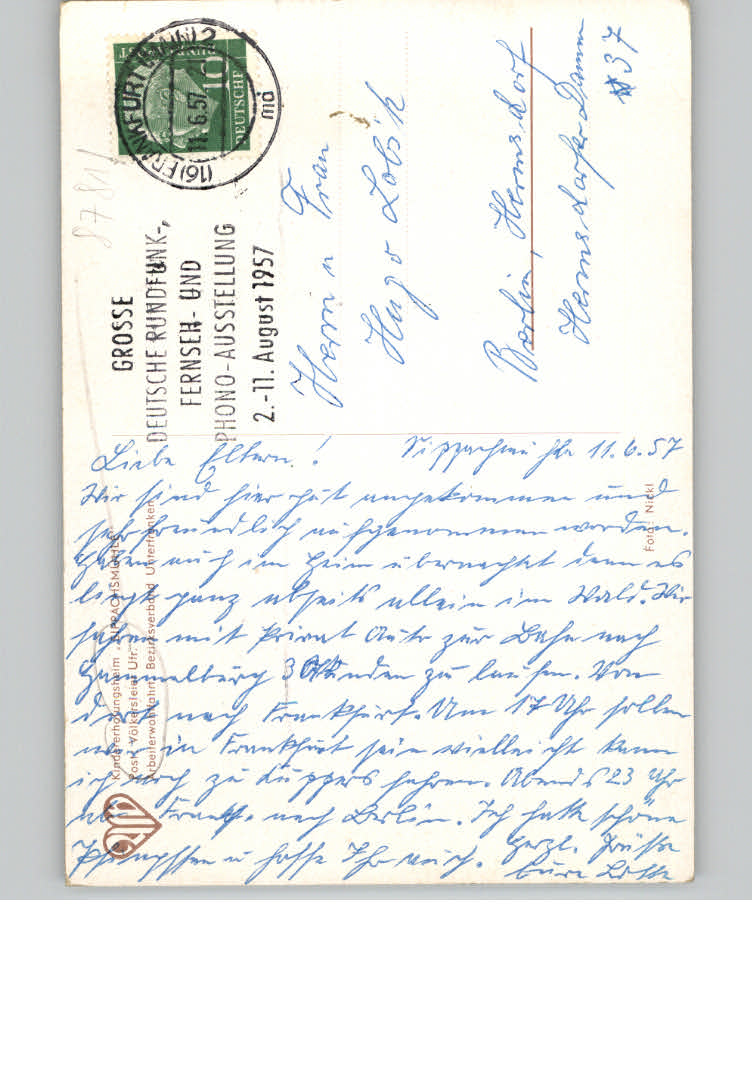 (16) FRANKFURT (MAIN) 2
11.6.57
mä
10
DEUTSCHE
GROSSE
DEUTSCHE RUNDFUNK-,
FERNSEH- UND
PHONO-AUSSTELLUNG
2.-11. August 1957
8781
Herrn u Frau
Hugo Lobsk
Berlin, Hermsdorf
Hermsdorfer Damm
37
Liebe Eltern! 11.6.57
Wir sind hier gut angekommen und
sehr freundlich aufgenommen worden.
Haben auch im Heim übernachtet denn es
liegt ganz abseits allein im Wald. Wir
fahren mit Privat Auto zur Bahn nach
Hammelburg 3 Stunden zu laufen. Von
dort nach Frankfurt. Um 17 Uhr sollen
wir in Frankfurt sein vielleicht kann
ich noch zu Küppers fahren. Abends 23 Uhr
ab Frankf. nach Berlin. Ich hatte schöne
Pfingsten u hoffe Ihr auch. Herzl. Grüße
Eure Lotte
Kindererholungsheim „SIPPACHSMÜHLE"
Post: Völkersleier Ufr.
Arbeiterwohlfahrt Bezirksverband Unterfranken
Foto: Nickl